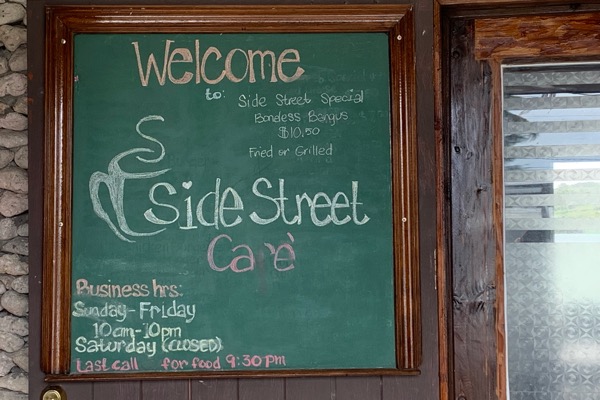 Welcome
to:
Side Street Special
Boneless Bangus
$10.50
Fried or Grilled
Side Street
Café
Business hrs:
Sunday - Friday
10am-10pm
Saturday (CLOSED)
Last call for food 9:30 pm